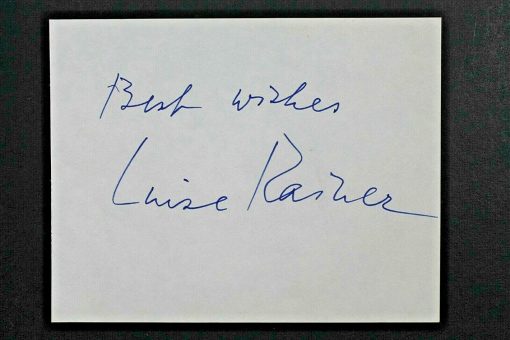 Best wishes
Luise Rainer